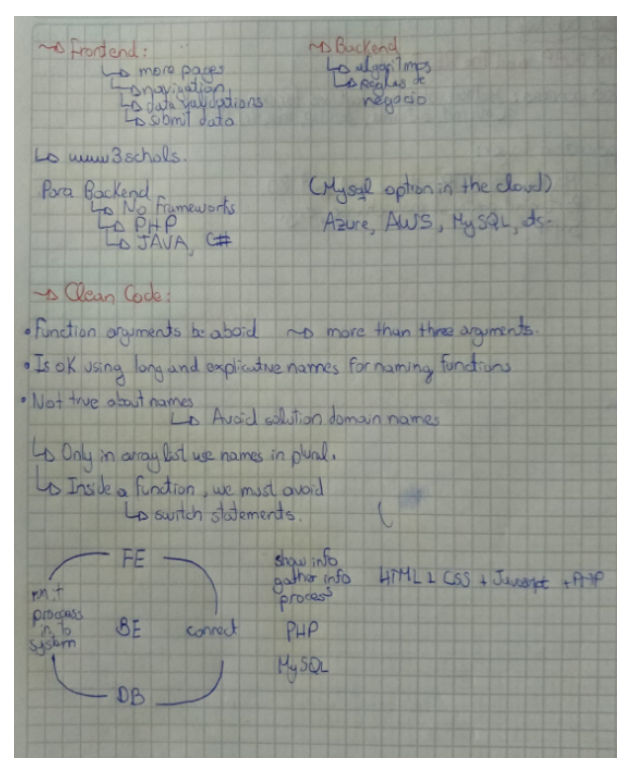 Frontend:
↳ more pages
↳ navigation
↳ data validations
↳ submit data
Backend
↳ algoritmos
↳ Reglas de
negocio
↳ www3schols.
Para Backend
↳ No frameworks
↳ PHP
↳ JAVA, C#
(Mysql option in the cloud)
Azure, AWS, MySQL, ds.
Clean Code:
• Function arguments be aboid ~> more than three arguments.
• Is OK using long and explicative names for naming functions
• Not true about names
↳ Avoid solution domain names
↳ Only in array list use names in plural.
↳ Inside a function, we must avoid
↳ switch statements.
FE
BE connect
DB
process
in to
system
show info
gather info
process
HTML + CSS + Javascript + PHP
PHP
MySQL